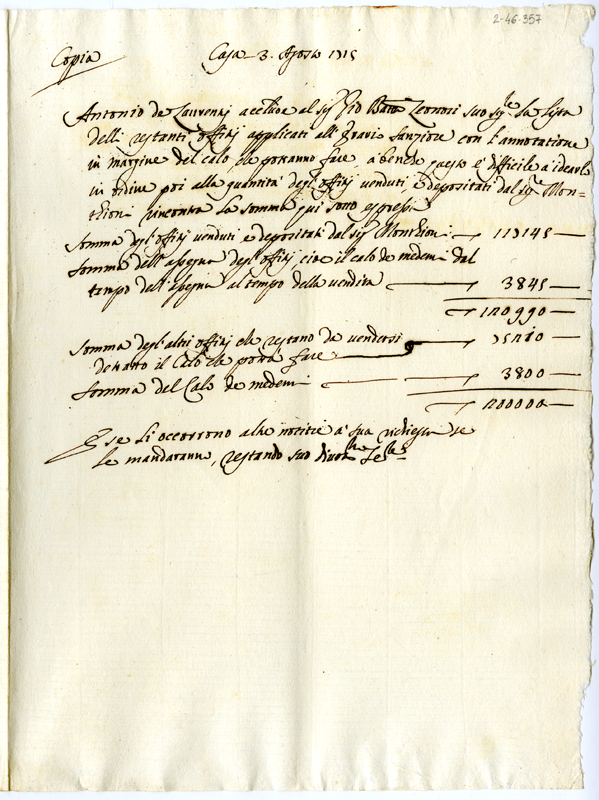 2-46-357
Copia
Casa 3. Agosto 1715
Antonio de Laurentij acclude al Sig.r Pio Leonori suo Sig.re La Lista
delli restanti offitij applicati all'Erario Sanziore con l'annotatione
in margine del calo, che potranno fare, a benche questo e' difficile a idearlo
in ordine poi alla quantita' degl'offitij venduti, e depositati dal Sig.r Mon=
thioni rincontra la somma qui sotto espressa
Somma degl'offitij venduti e depositati dal Sig.r Monthioni — 117145 —
Somma dell'assegna degl'offitij, cioe il calo de medemi dal
tempo dell'assegna al tempo della vendita — 3845 —
120990 —
Somma degl'altri offitij che restano da vendersi — 75210 —
detratto il Calo che potra fare
Somma del Calo de medemi — 3800 —
200000 —
E se li occorrono altre notitie a' sua richiesta se
le mandaranno, restando suo